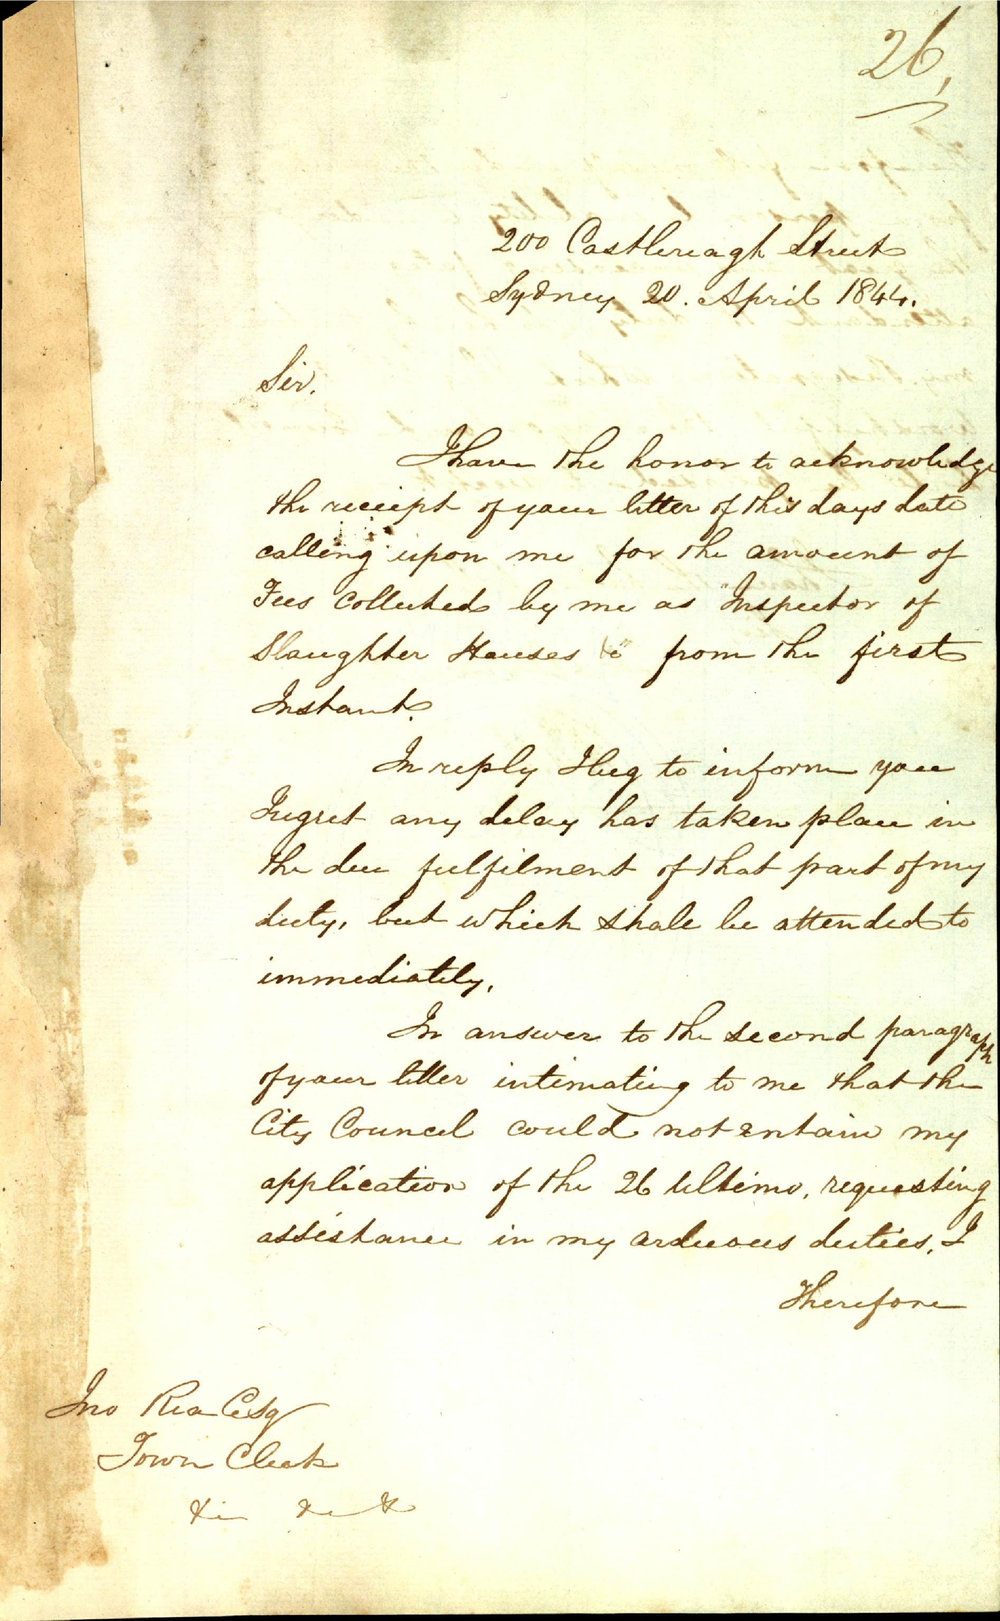 26,
200 Castlereagh Street
Sydney 20. April 1844.
Sir.
I have the honor to acknowledge
the receipt of your letter of this days date
calling upon me for the amount of
Fees Collected by me as "Inspector of
Slaughter Houses &c" from the first
Instant.
In reply I beg to inform you
I regret any delay has taken place in
the due fulfilment of that part of my
duty, but which shall be attended to
immediately.
In answer to the second paragraph
of your letter intimating to me that the
City Council could not entain my
application of the 26 Ultimo, requesting
assistance in my arduous duties, I
Therefore
Jno Rea Esq
Town Clerk
&c &c &c